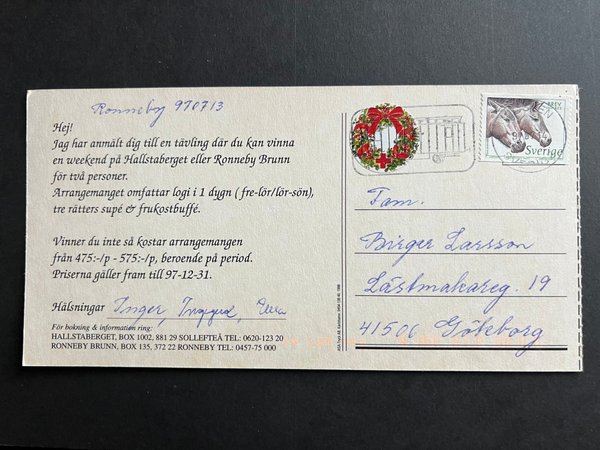 Ronneby 970713
Hej!
Jag har anmält dig till en tävling där du kan vinna
en weekend på Hallstaberget eller Ronneby Brunn
för två personer.
Arrangemanget omfattar logi i 1 dygn ( fre-lör/lör-sön),
tre rätters supé & frukostbuffé.
Vinner du inte så kostar arrangemangen
från 475:-/p - 575:-/p, beroende på period.
Priserna gäller fram till 97-12-31.
Hälsningar Inger, Ingegerd, Ulla
För bokning & information ring:
HALLSTABERGET, BOX 1002, 881 29 SOLLEFTEÅ TEL: 0620-123 20
RONNEBY BRUNN, BOX 135, 372 22 RONNEBY TEL: 0457-75 000
BREV
Sverige
Fam.
Birger Larsson
Lästmakareg. 19
41506 Göteborg